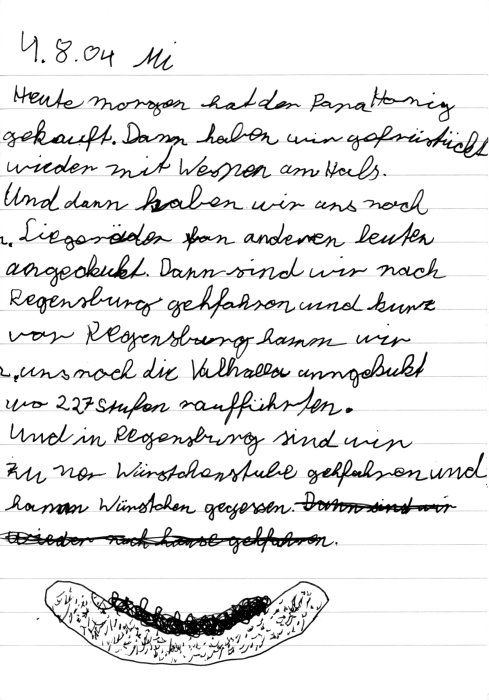 4.8.04 Mi
Heute morgen hat der Papa Honig
gekauft. Dann haben wir gefrüstückt
wieder mit Wespen am Hals.
Und dann haben wir uns noch
Liegeräder fon anderen leuten
angeckukt. Dann sind wir nach
Regensburg gehfahren und kurz
vor Regensburg hamm wir
uns noch die Valhalla anngekukt
wo 227 Stufen raufführten.
Und in Regensburg sind wir
zu ner Würstchenstube gehfahren und
haman Würstchen gegessen. Dann sind wir
wieder nach hause gehfahren.